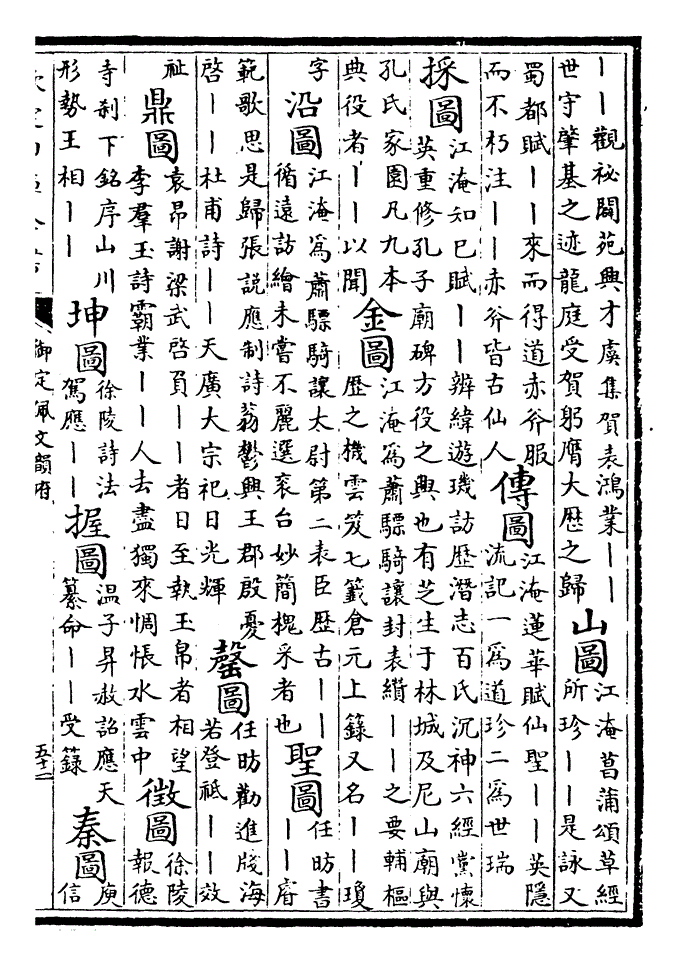 丨丨觀祕閟苑興才虞集賀表鴻業丨丨
世守肇基之迹龍庭受賀躬膺大歴之歸
山圖
江淹菖蒲頌草經
所珍丨丨是詠又
蜀都賦丨丨來而得道赤斧服
而不朽注丨丨赤斧皆古仙人
傳圖
江淹蓮華賦仙聖丨丨英隱
流記一為道珍二為世瑞
採圖
江淹知己賦丨丨辨緯遊璣訪歴潛志百氏沉神六經黨懷
英重修孔子廟碑方役之興也有芝生于林城及尼山廟與
孔氏家園凡九本
典役者丨丨以聞
金圖
江淹為蕭驃騎讓封表纘丨丨之要輔樞
歴之機雲笈七籖倉元上籙又名丨丨瓊
字
沿圖
江淹為蕭驃騎讓太尉第二表臣歴古丨丨
循遠訪繪未嘗不麗選衮台妙簡槐采者也
聖圖
任昉書
丨丨睿
範歌思是歸張説應制詩蓊鬱興王郡殷憂
啓丨丨杜甫詩丨丨天廣大宗祀日光輝
罄圖
任昉勸進牋海
若登祗丨丨效
祉
鼎圖
袁昂謝梁武啓負丨丨者日至執玉帛者相望
李羣玉詩霸業丨丨人去盡獨來惆悵水雲中
徴圖
徐陵
報德
寺刹下銘序山川
形勢王相丨丨
坤圖
徐陵詩法
駕應丨丨
握圖
温子昇赦詔應天
纂命丨丨受籙
秦圖
庾
信
御定佩文韻府